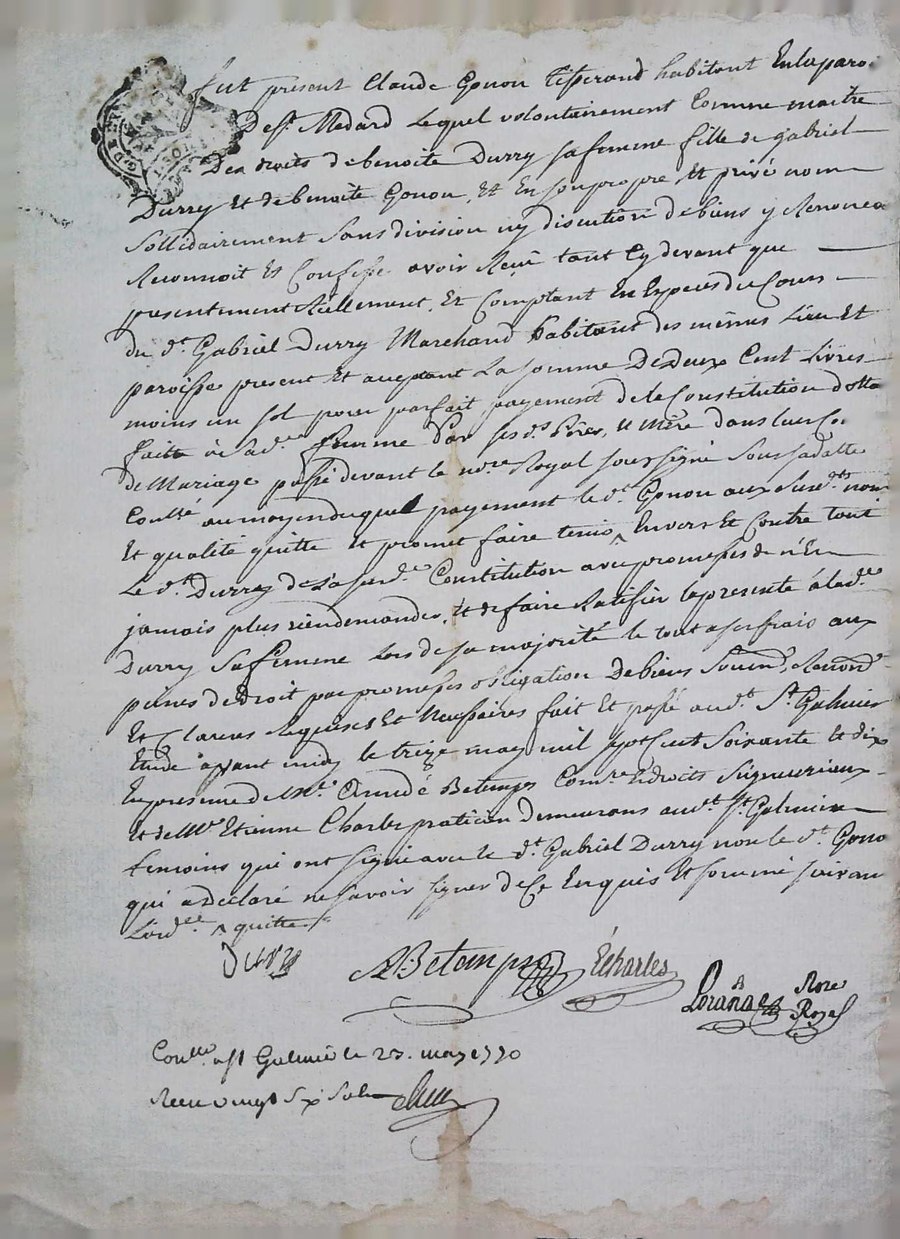 fut present Claude Gonou tisserand habitant En la paroi
De st. Medard Lequel volontairement Comme maitre
Des droits de benoite Durry sa femme fille de gabriel
Durry et de benoite Gonou, Et En son propre Et privé nom
sollidairement sans division ny discution de biens y Renoncea
Reconnoit Et Confesse avoir Reçû tant Cy devant que
presentement Réellement, Et Comptant En Especes du Cours
du dt. Gabriel Durry Marchand habitant des mêmes Lieu Et
paroisse present Et aceptant La somme De Deux Cent Livres
moins un sol pour parfait payement de la Constitution dotta
faitte à sa de. femme par ses ds. Péres, Et Mére dans leur Co.
de Mariage passé devant le nore Royal soussigné sous sa datte
Coullé au moyen duquel payement le dt. Gonou aux susdts nom
Et qualité quitte Et promet faire tenir ^ Envers Et Contre tout
Le dt. Durry de La sus de. Constitution avec promesses de n'En
jamais plus rien demander, Et de faire Ratifier la presente à la de.
Durry sa femme Lors de sa majorité le tout a ses frais aux
peines de droit par promesses obligation De biens soumn, Renond
Et Clauses Requises Et necessaires fait Et passé audt. St. Galmier
Etude avant midy le treize may mil sept cent soixante Et dix
En presence de Mr. Amedé Betemps Comre. E droits Signeuriaux
Et de Mr. Etienne Charles praticien Demeurans audt. St. Galmier
temoins qui ont signé avec le dt. Gabriel Durry non le dt. Gono
qui a Declaré ne savoir signer de Ce Enquis Et sommé suivan
L'ord.ce ^ quitte
Dury
ABetemps Echarles
Nore
Royal
Coullé a st Galmié le 23. may 1770
Recu vingt six sols